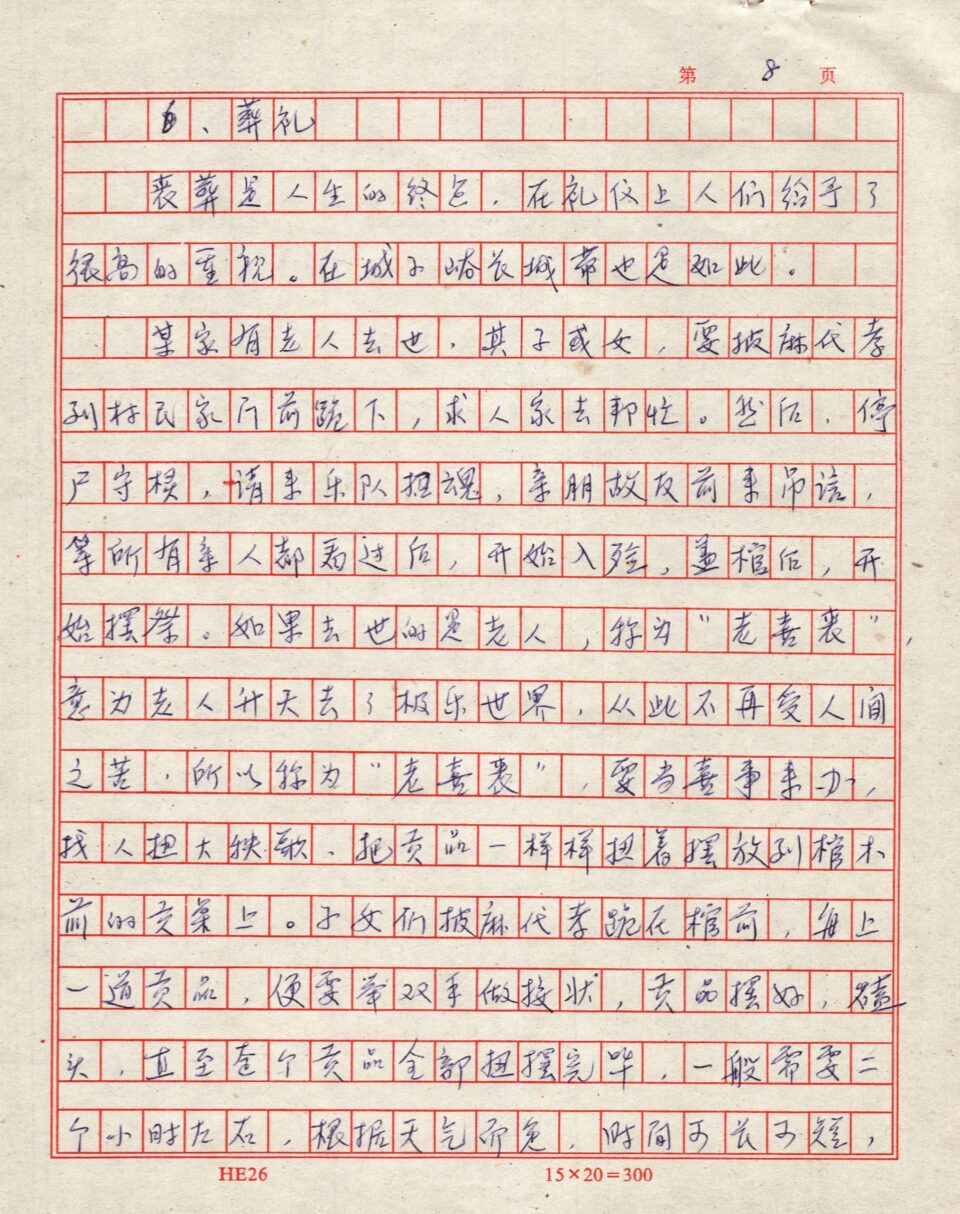 第 8 页
6、葬礼
丧葬是人生的终点，在礼仪上人们给予了
很高的重视。在城子峪长城带也是如此。
某家有老人去世，其子或女，要披麻代孝
到村民家门前跪下，求人家去邦忙。然后，停
尸守棂，请来乐队扭魂，亲朋故友前来吊信，
等所有亲人都看过后，开始入殓，盖棺后，开
始摆祭。如果去世的是老人，称为“老喜丧”，
意为老人升天去了极乐世界，从此不再受人间
之苦，所以称为“老喜丧”，要当喜事来办，
找人扭大秧歌、把贡品一样样扭着摆放到棺木
前的贡菓上。子女们披麻代孝跪在棺前，每上
一道贡品，便要举双手做接状，贡品摆好，磕
头，直至查个贡品全部扭摆完毕，一般需要二
个小时左右，根据天气而免，时间可长可短，
HE26 15×20=300